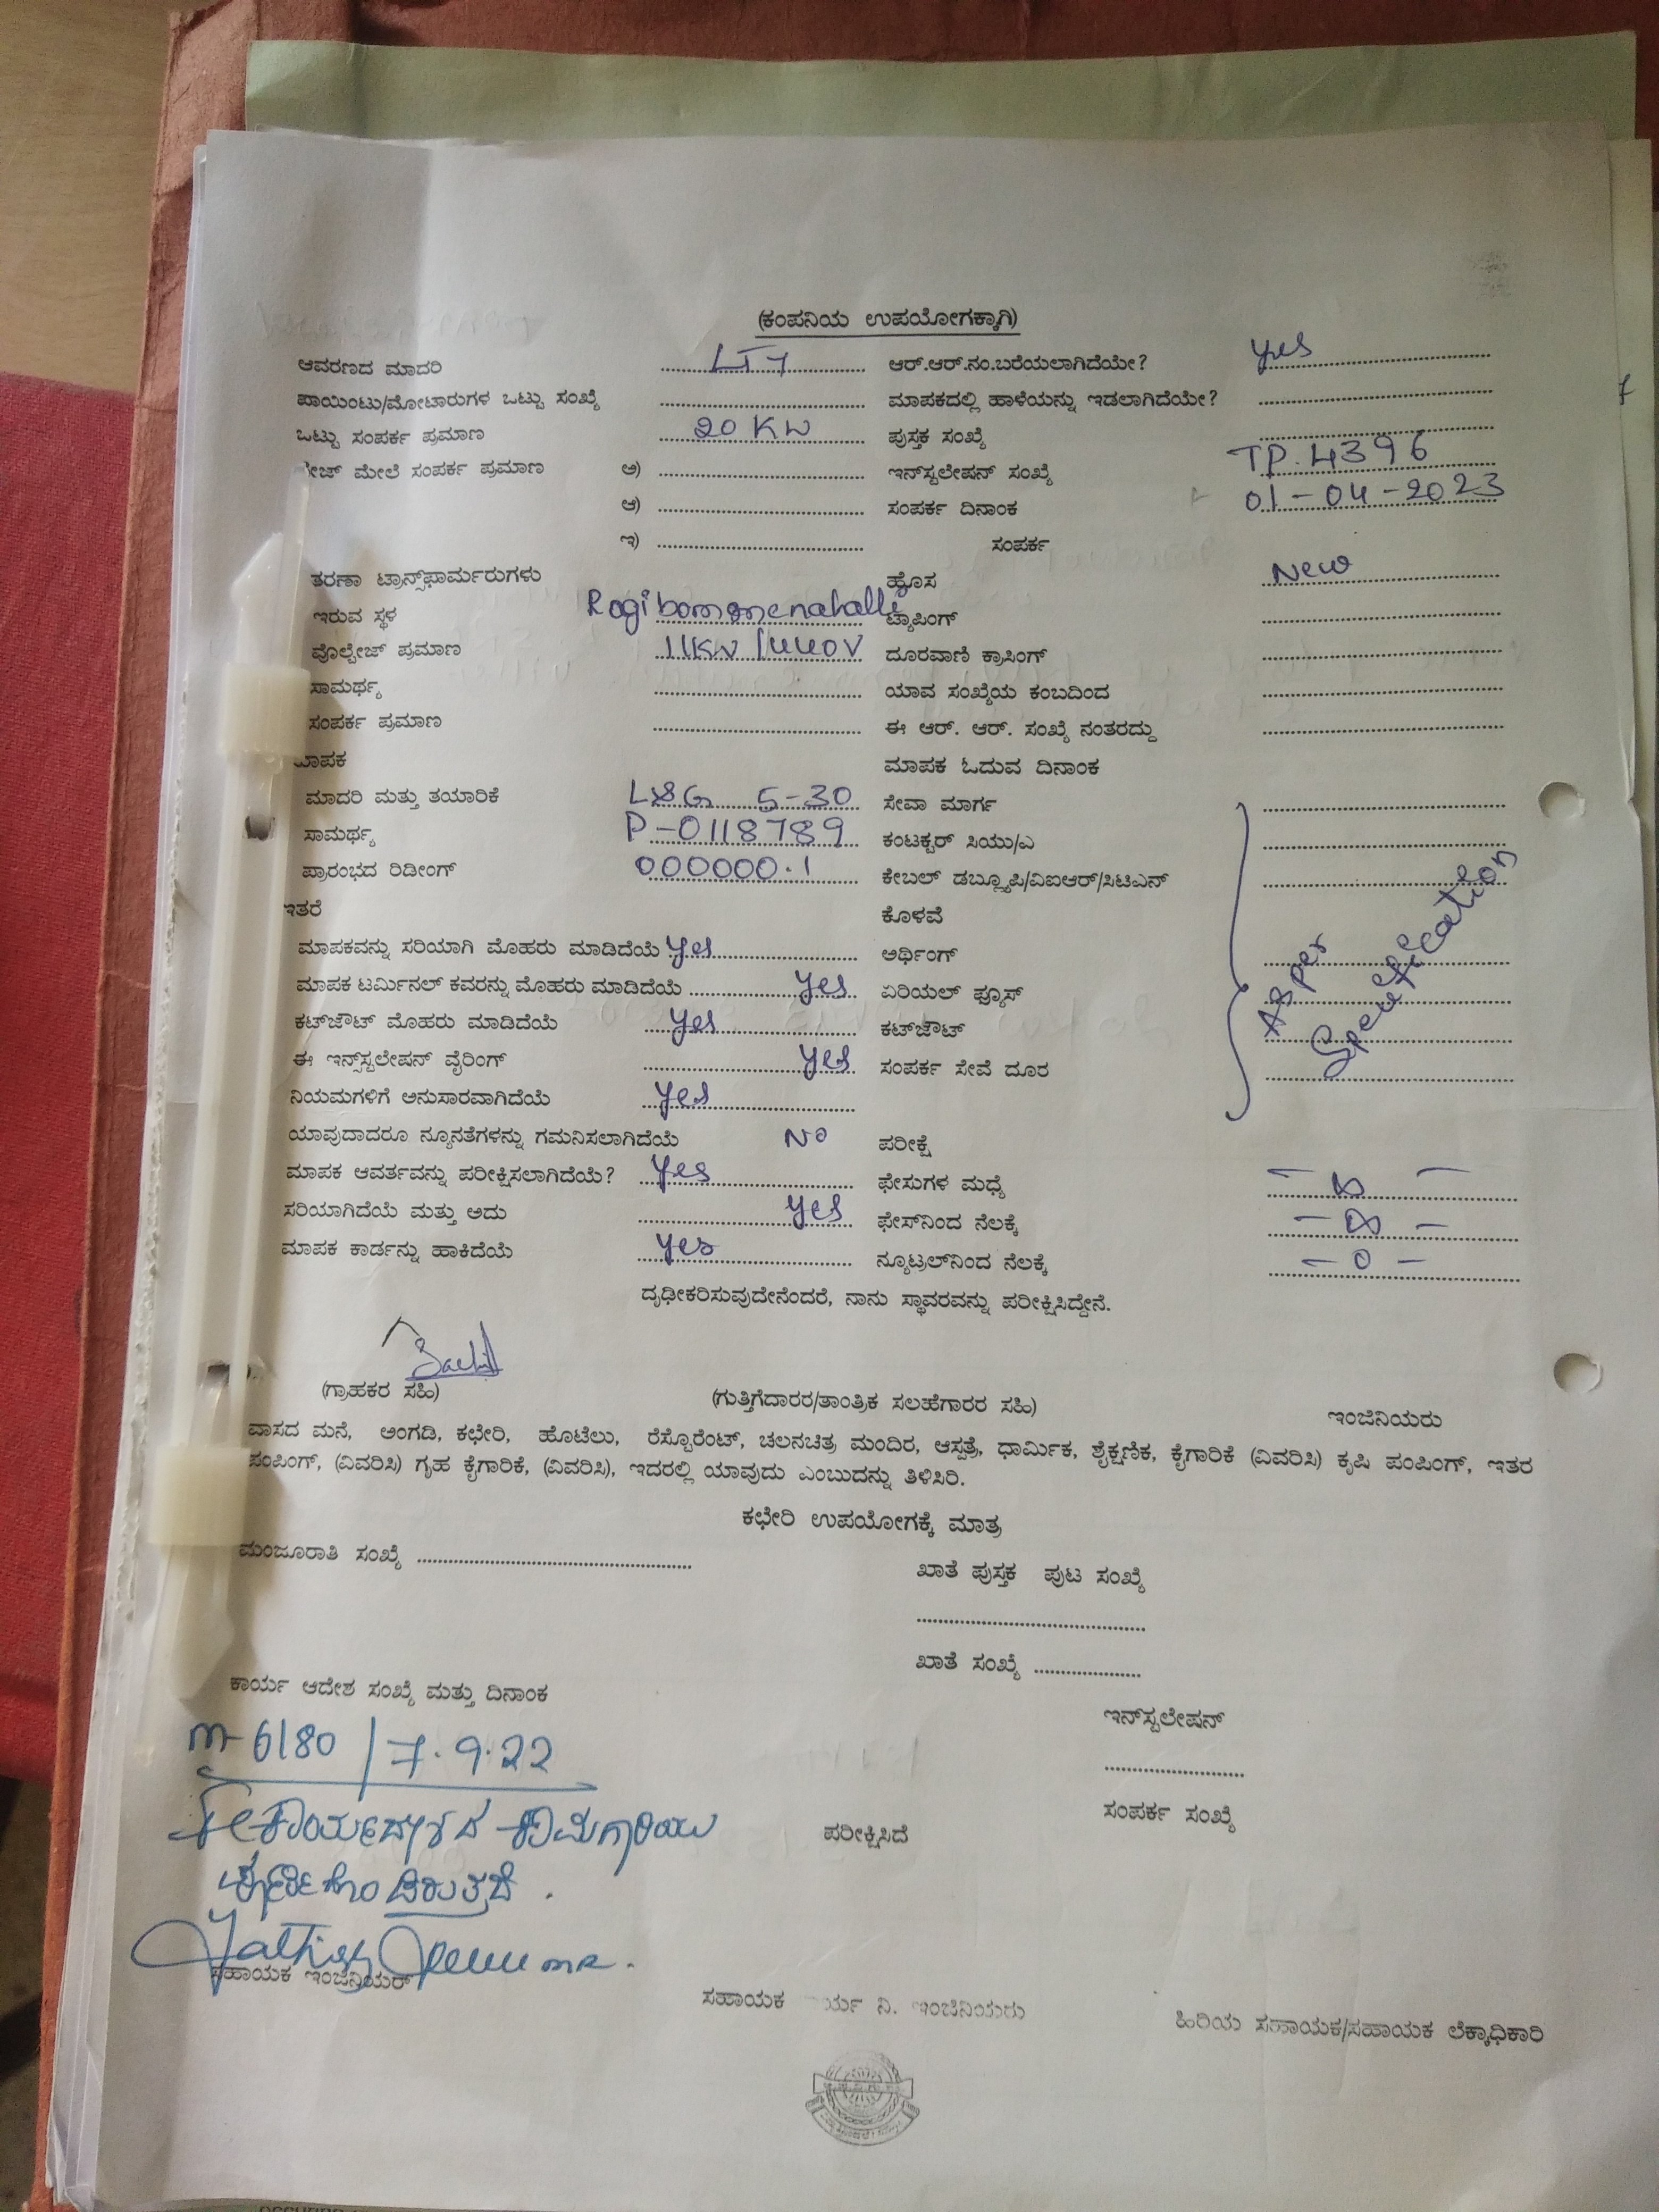 (ಕಂಪನಿಯ ಉಪಯೋಗಕ್ಕಾಗಿ)
ಆವರಣದ ಮಾದರಿ LT7 ಆರ್.ಆರ್.ನಂ.ಬರೆಯಲಾಗಿದೆಯೇ? yes
ಪಾಯಿಂಟು/ಮೋಟಾರುಗಳ ಒಟ್ಟು ಸಂಖ್ಯೆ ಮಾಪಕದಲ್ಲಿ ಹಾಳೆಯನ್ನು ಇಡಲಾಗಿದೆಯೇ?
ಒಟ್ಟು ಸಂಪರ್ಕ ಪ್ರಮಾಣ 20 KW ಪುಸ್ತಕ ಸಂಖ್ಯೆ
ಮೇಲೆ ಸಂಪರ್ಕ ಪ್ರಮಾಣ ಅ) ಇನ್‌ಸ್ಟಲೇಷನ್ ಸಂಖ್ಯೆ TP. 4396
ಆ) ಸಂಪರ್ಕ ದಿನಾಂಕ 01-04-2023
ಇ) ಸಂಪರ್ಕ
ತರಣಾ ಟ್ರಾನ್ಸ್‌ಫಾರ್ಮರುಗಳು ಹೊಸ New
ಇರುವ ಸ್ಥಳ Rogibommenahalli ಟ್ಯಾಪಿಂಗ್
ವೊಲ್ಟೇಜ್ ಪ್ರಮಾಣ 11KV/440V ದೂರವಾಣಿ ಕ್ರಾಸಿಂಗ್
ಸಾಮರ್ಥ್ಯ ಯಾವ ಸಂಖ್ಯೆಯ ಕಂಬದಿಂದ
ಸಂಪರ್ಕ ಪ್ರಮಾಣ ಈ ಆರ್. ಆರ್. ಸಂಖ್ಯೆ ನಂತರದ್ದು
ಮಾಪಕ ಮಾಪಕ ಓದುವ ದಿನಾಂಕ
ಮಾದರಿ ಮತ್ತು ತಯಾರಿಕೆ L&G 5-30 ಸೇವಾ ಮಾರ್ಗ
ಸಾಮರ್ಥ್ಯ P-0118789 ಕಂಟಕ್ಟರ್ ಸಿಯು/ಎ
ಪ್ರಾರಂಭದ ರಿಡೀಂಗ್ 000000.1 ಕೇಬಲ್ ಡಬ್ಲ್ಯೂಪಿ/ವಿಐಆರ್/ಸಿಟಿಎನ್
ಇತರೆ ಕೊಳವೆ
ಮಾಪಕವನ್ನು ಸರಿಯಾಗಿ ಮೊಹರು ಮಾಡಿದೆಯೆ yes ಅರ್ಥಿಂಗ್ As per
ಮಾಪಕ ಟರ್ಮಿನಲ್ ಕವರನ್ನು ಮೊಹರು ಮಾಡಿದೆಯೆ yes ಏರಿಯಲ್ ಫ್ಯೂಸ್ Specification
ಕಟ್‌ಔಟ್ ಮೊಹರು ಮಾಡಿದೆಯೆ yes ಕಟ್‌ಔಟ್
ಈ ಇನ್ಸ್‌ಸ್ಟಲೇಷನ್ ವೈರಿಂಗ್ yes ಸಂಪರ್ಕ ಸೇವೆ ದೂರ
ನಿಯಮಗಳಿಗೆ ಅನುಸಾರವಾಗಿದೆಯೆ yes
ಯಾವುದಾದರೂ ನ್ಯೂನತೆಗಳನ್ನು ಗಮನಿಸಲಾಗಿದೆಯೆ No ಪರೀಕ್ಷೆ
ಮಾಪಕ ಆವರ್ತವನ್ನು ಪರೀಕ್ಷಿಸಲಾಗಿದೆಯೆ? yes ಫೇಸುಗಳ ಮಧ್ಯೆ - ∞ -
ಸರಿಯಾಗಿದೆಯೆ ಮತ್ತು ಅದು yes ಫೇಸ್‌ನಿಂದ ನೆಲಕ್ಕೆ - ∞ -
ಮಾಪಕ ಕಾರ್ಡನ್ನು ಹಾಕಿದೆಯೆ yes ನ್ಯೂಟ್ರಲ್‌ನಿಂದ ನೆಲಕ್ಕೆ - 0 -
ದೃಢೀಕರಿಸುವುದೇನೆಂದರೆ, ನಾನು ಸ್ಥಾವರವನ್ನು ಪರೀಕ್ಷಿಸಿದ್ದೇನೆ.
(ಗ್ರಾಹಕರ ಸಹಿ) (ಗುತ್ತಿಗೆದಾರರ/ತಾಂತ್ರಿಕ ಸಲಹೆಗಾರರ ಸಹಿ) ಇಂಜಿನಿಯರು
ವಾಸದ ಮನೆ, ಅಂಗಡಿ, ಕಛೇರಿ, ಹೊಟೆಲು, ರೆಸ್ಟೊರೆಂಟ್, ಚಲನಚಿತ್ರ ಮಂದಿರ, ಆಸ್ಪತ್ರೆ, ಧಾರ್ಮಿಕ, ಶೈಕ್ಷಣಿಕ, ಕೈಗಾರಿಕೆ (ವಿವರಿಸಿ) ಕೃಷಿ ಪಂಪಿಂಗ್, ಇತರ
ಪಂಪಿಂಗ್, (ವಿವರಿಸಿ) ಗೃಹ ಕೈಗಾರಿಕೆ, (ವಿವರಿಸಿ), ಇದರಲ್ಲಿ ಯಾವುದು ಎಂಬುದನ್ನು ತಿಳಿಸಿರಿ.
ಕಛೇರಿ ಉಪಯೋಗಕ್ಕೆ ಮಾತ್ರ
ಮಂಜೂರಾತಿ ಸಂಖ್ಯೆ
ಖಾತೆ ಪುಸ್ತಕ ಪುಟ ಸಂಖ್ಯೆ
ಖಾತೆ ಸಂಖ್ಯೆ
ಕಾರ್ಯ ಆದೇಶ ಸಂಖ್ಯೆ ಮತ್ತು ದಿನಾಂಕ
ಇನ್‌ಸ್ಟಲೇಷನ್
m-6180 / 7.9.22
ಸಂಪರ್ಕ ಸಂಖ್ಯೆ
ಪರೀಕ್ಷಿಸಿದೆ
ಸಹಾಯಕ ಇಂಜಿನಿಯರ್
ಸಹಾಯಕ ನಿ. ಇಂಜಿನಿಯರು
ಹಿರಿಯ ಸಹಾಯಕ/ಸಹಾಯಕ ಲೆಕ್ಕಾಧಿಕಾರಿ